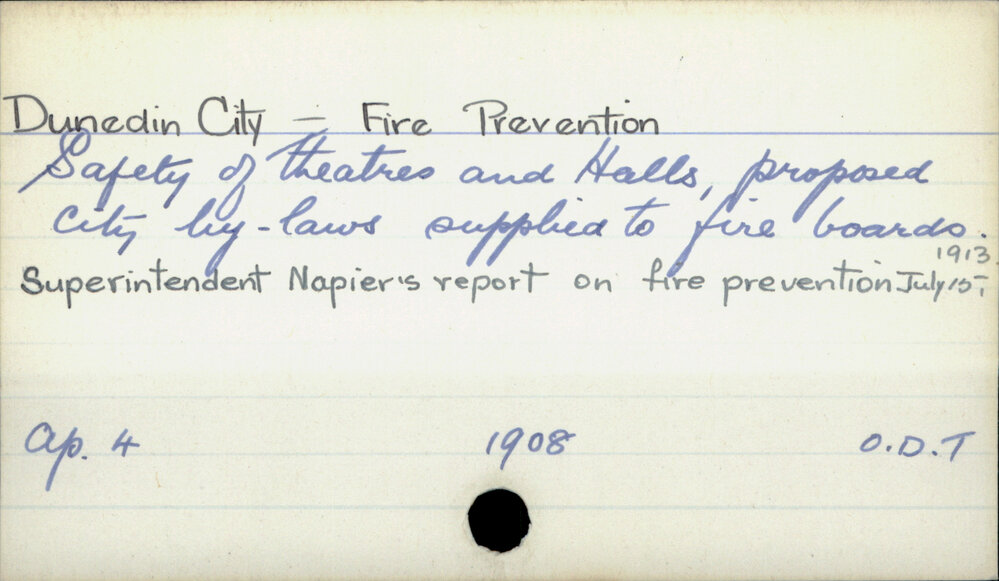 Dunedin City – Fire Prevention
Safety of Theatres and Halls, proposed
city by-laws supplied to fire boards.
1913.
Superintendent Napier's report on fire prevention July 15,
Ap. 4 1908 O.D.T